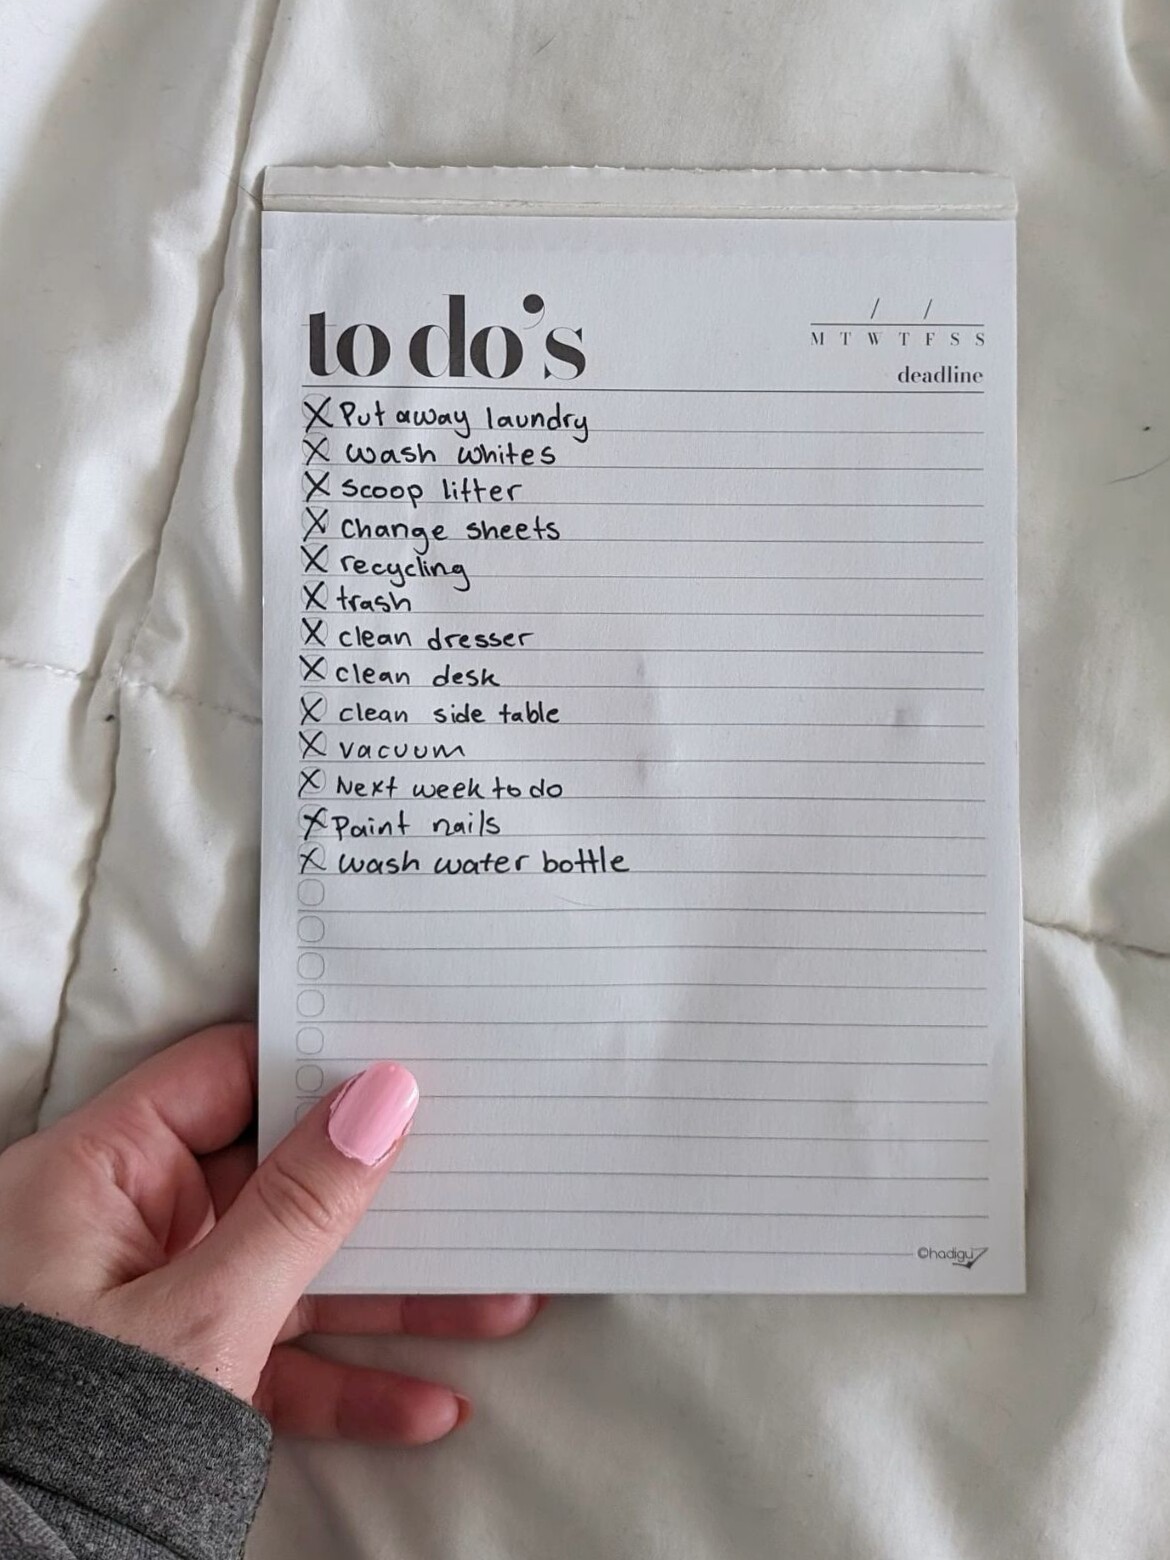 to do's
/ /
M T W T F S S
deadline
X Put away laundry
X wash whites
X Scoop litter
X Change sheets
X recycling
X trash
X clean dresser
X clean desk
X clean side table
X vacuum
X Next week to do
X Paint nails
X wash water bottle
©hadigu